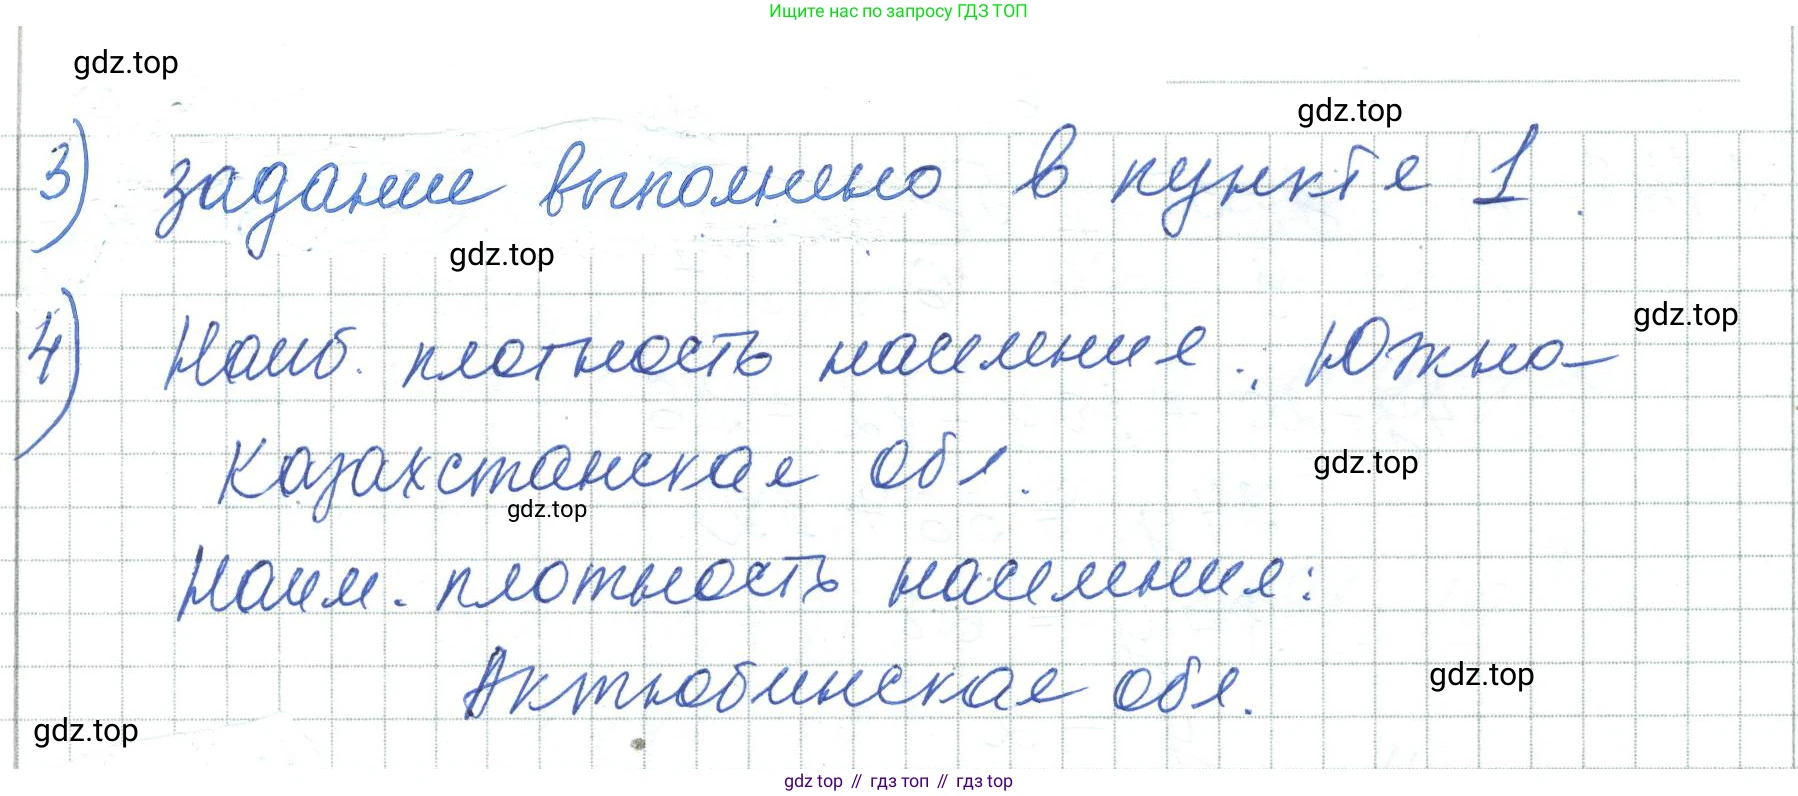 Ищите нас по запросу ГДЗ ТОП
gdz.top
gdz.top
3) задание выполнено в пункте 1.
gdz.top
gdz.top
4) Наиб. плотность населения: Южно-
Казахстанская обл.
gdz.top
gdz.top
Наим. плотность населения:
Актюбинская обл.
gdz.top
gdz.top
gdz top // гдз топ // гдз top